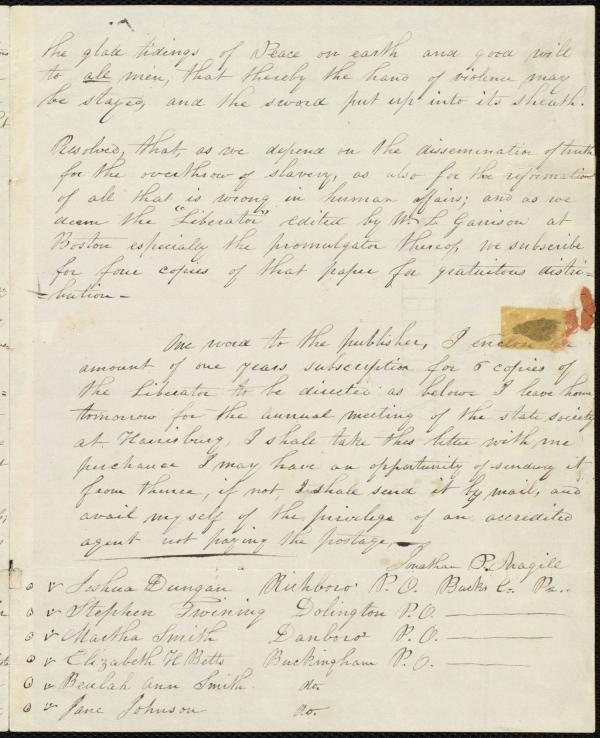 the glad tidings of Peace on earth and good will
to all men, that thereby the hand of violence may
be stayed, and the sword put up into its sheath.
Resolved, that, as we depend on the dissemination of truth
for the overthrow of slavery, as also for the reformation
of all that is wrong in human affairs; and as we
deem the "Liberator" edited by Wm L. Garrison at
Boston especially the promulgator thereof, we subscribe
for four copies of that paper for gratuitous distri=
=bution -
One word to the publisher, I enclose
amount of one years subscription for 6 copies of
the Liberator to be directed as below I leave home
tomorrow for the annual meeting of the state society
at Harrisburg, I shall take this letter with me
perchance I may have an opportunity of sending it
from thence, if not, I shall send it by mail, and
avail myself of the privilege of an accredited
agent not paying the postage -
Jonathan P. Magill
Joshua Dungan Richboro P. O. Bucks Co. Pa..
Stephen Twining Dolington P. O.
Martha Smith Danboro P. O.
Elizabeth H Betts Buckingham P. O.
Beulah Ann Smith. do.
Jane Johnson do.